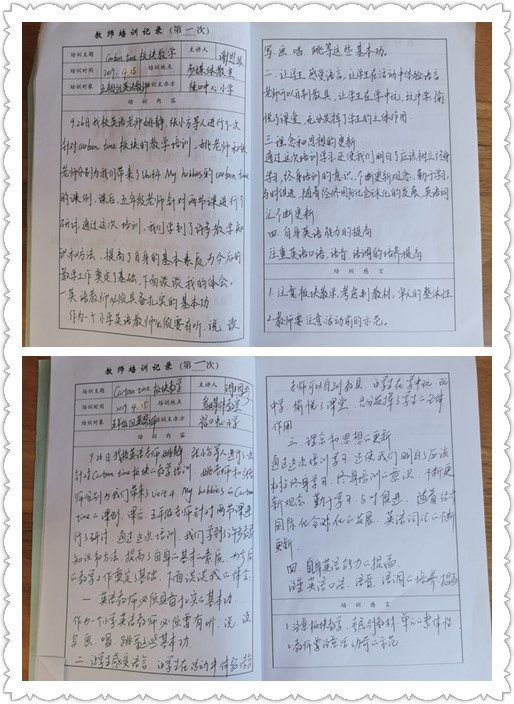 教师培训记录(第一次)
培训主题 Cartoon time 板块教学 主讲人
培训时间 2019. 4. 15 培训地点 多媒体教室
培训对象 五年级组英语教师 主办方 中心小学
培训内容
9.26日我校英语老师姚静、张小芳等人进行了一次
针对 Cartoon time 板块的教学培训,姚老师和张
老师分别为我们带来了Unit4 My hobbies的cartoon time
的课例.课后,五年级老师针对两节课进行了
研讨,通过这次培训,我们学到了许多教学知
识和方法,提高了自身的基本素质,为今后的
教学工作奠定了基础,下面谈谈我的体会:
一.英语教师必须具备扎实的基本功
作为一个小学英语教师必须要有听、说、读
写、画、唱、跳等这些基本功.
二、让学生感受语言,让学生在活动中体验语言
老师可以自制教具,让学生在学中玩,玩中学,愉
悦了课堂,充分发挥了学生的主体作用.
三.理念和思想的更新
通过这次培训学习还使我们明白了应该树立终身
学习,终身培训的意识,不断更新观念,勤于学习,
与时俱进,随着经济国际化全球化的发展,英语词
汇不断更新
四.自身英语能力的提高
注重英语口语、语音、语调的培养提高
培训感言
1.注意板块教学,考虑到教材、单元的整体性
2.教师要注意活动前的示范。
教师培训记录(第一次)
培训主题 Cartoon time 板块教学 主讲人
培训时间 2019. 4. 15 培训地点 多媒体教室
培训对象 五年级组英语教师 主办方 中心小学
培训内容
9.26日我校英语老师姚静、张小芳等人进行了一次
针对Cartoon time板块的教学培训,姚老师和张老
师分别为我们带来了Unit 4 My hobbies的Cartoon
time的课例.课后,五年级老师针对两节课进
行了研讨,通过这次培训,我们学到了许多教学
知识和方法,提高了自身的基本素质,为今后
的教学工作奠定了基础,下面谈谈我的体会:
一.英语教师必须具备扎实的基本功
作为一个小学英语教师必须要有听、说、读
写、画、唱、跳等这些基本功.
二.让学生感受语言,让学生在活动中体验语言
老师可以自制教具,让学生在学中玩,玩
中学,愉悦了课堂,充分发挥了学生的主体
作用
三.理念和思想的更新
通过这次培训学习还使我们明白了应该
树立终身学习,终身培训的意识,不断更
新观念,勤于学习,与时俱进,随着经济
国际化全球化的发展,英语词汇的不断
更新.
四.自身英语能力的提高
注重英语口语、语音、语调的培养提高
培训感言
1.注意板块教学,考虑到教材、单元的整体性
2.教师要注意活动前的示范